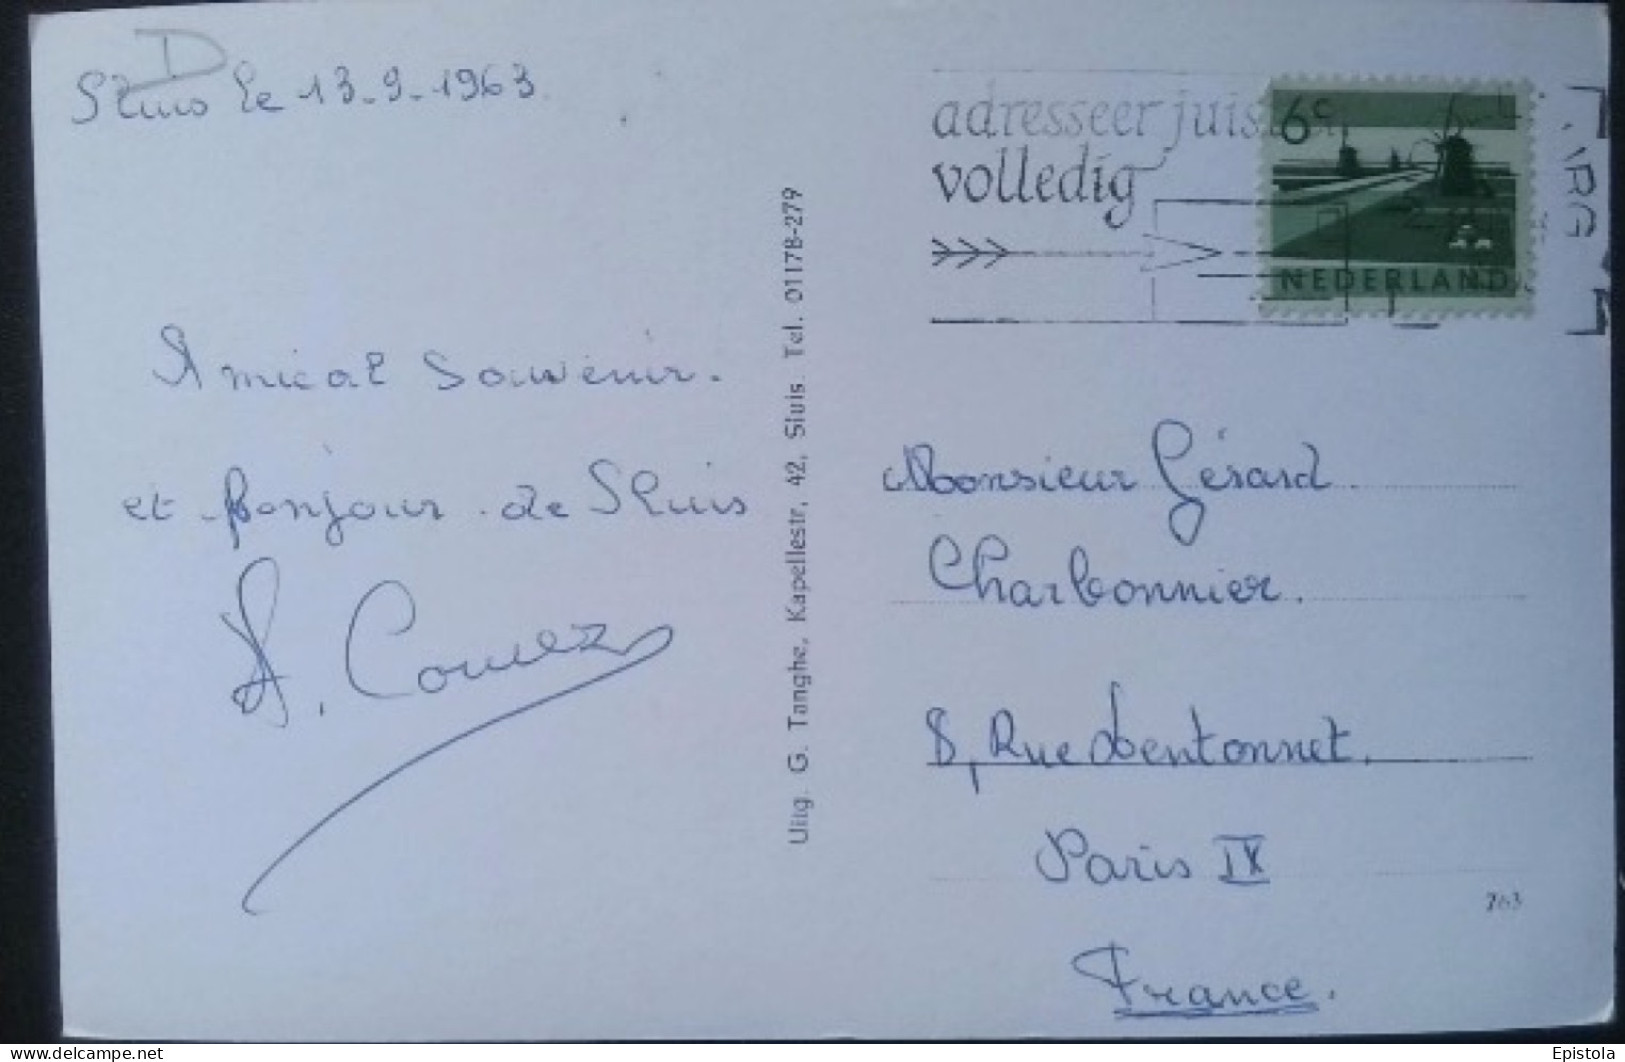 D
Sluis le 13-9-1963
Amical souvenir.
et bonjour de Sluis
Uitg. G. Tanghe, Kapellestr, 42, Sluis. Tel. 01178-279
adresseer juist
volledig
6c
NEDERLAND
Monsieur Gérard
Charbonnier.
8, Rue
Paris IX
763
France.
delcampe.net
Epistola